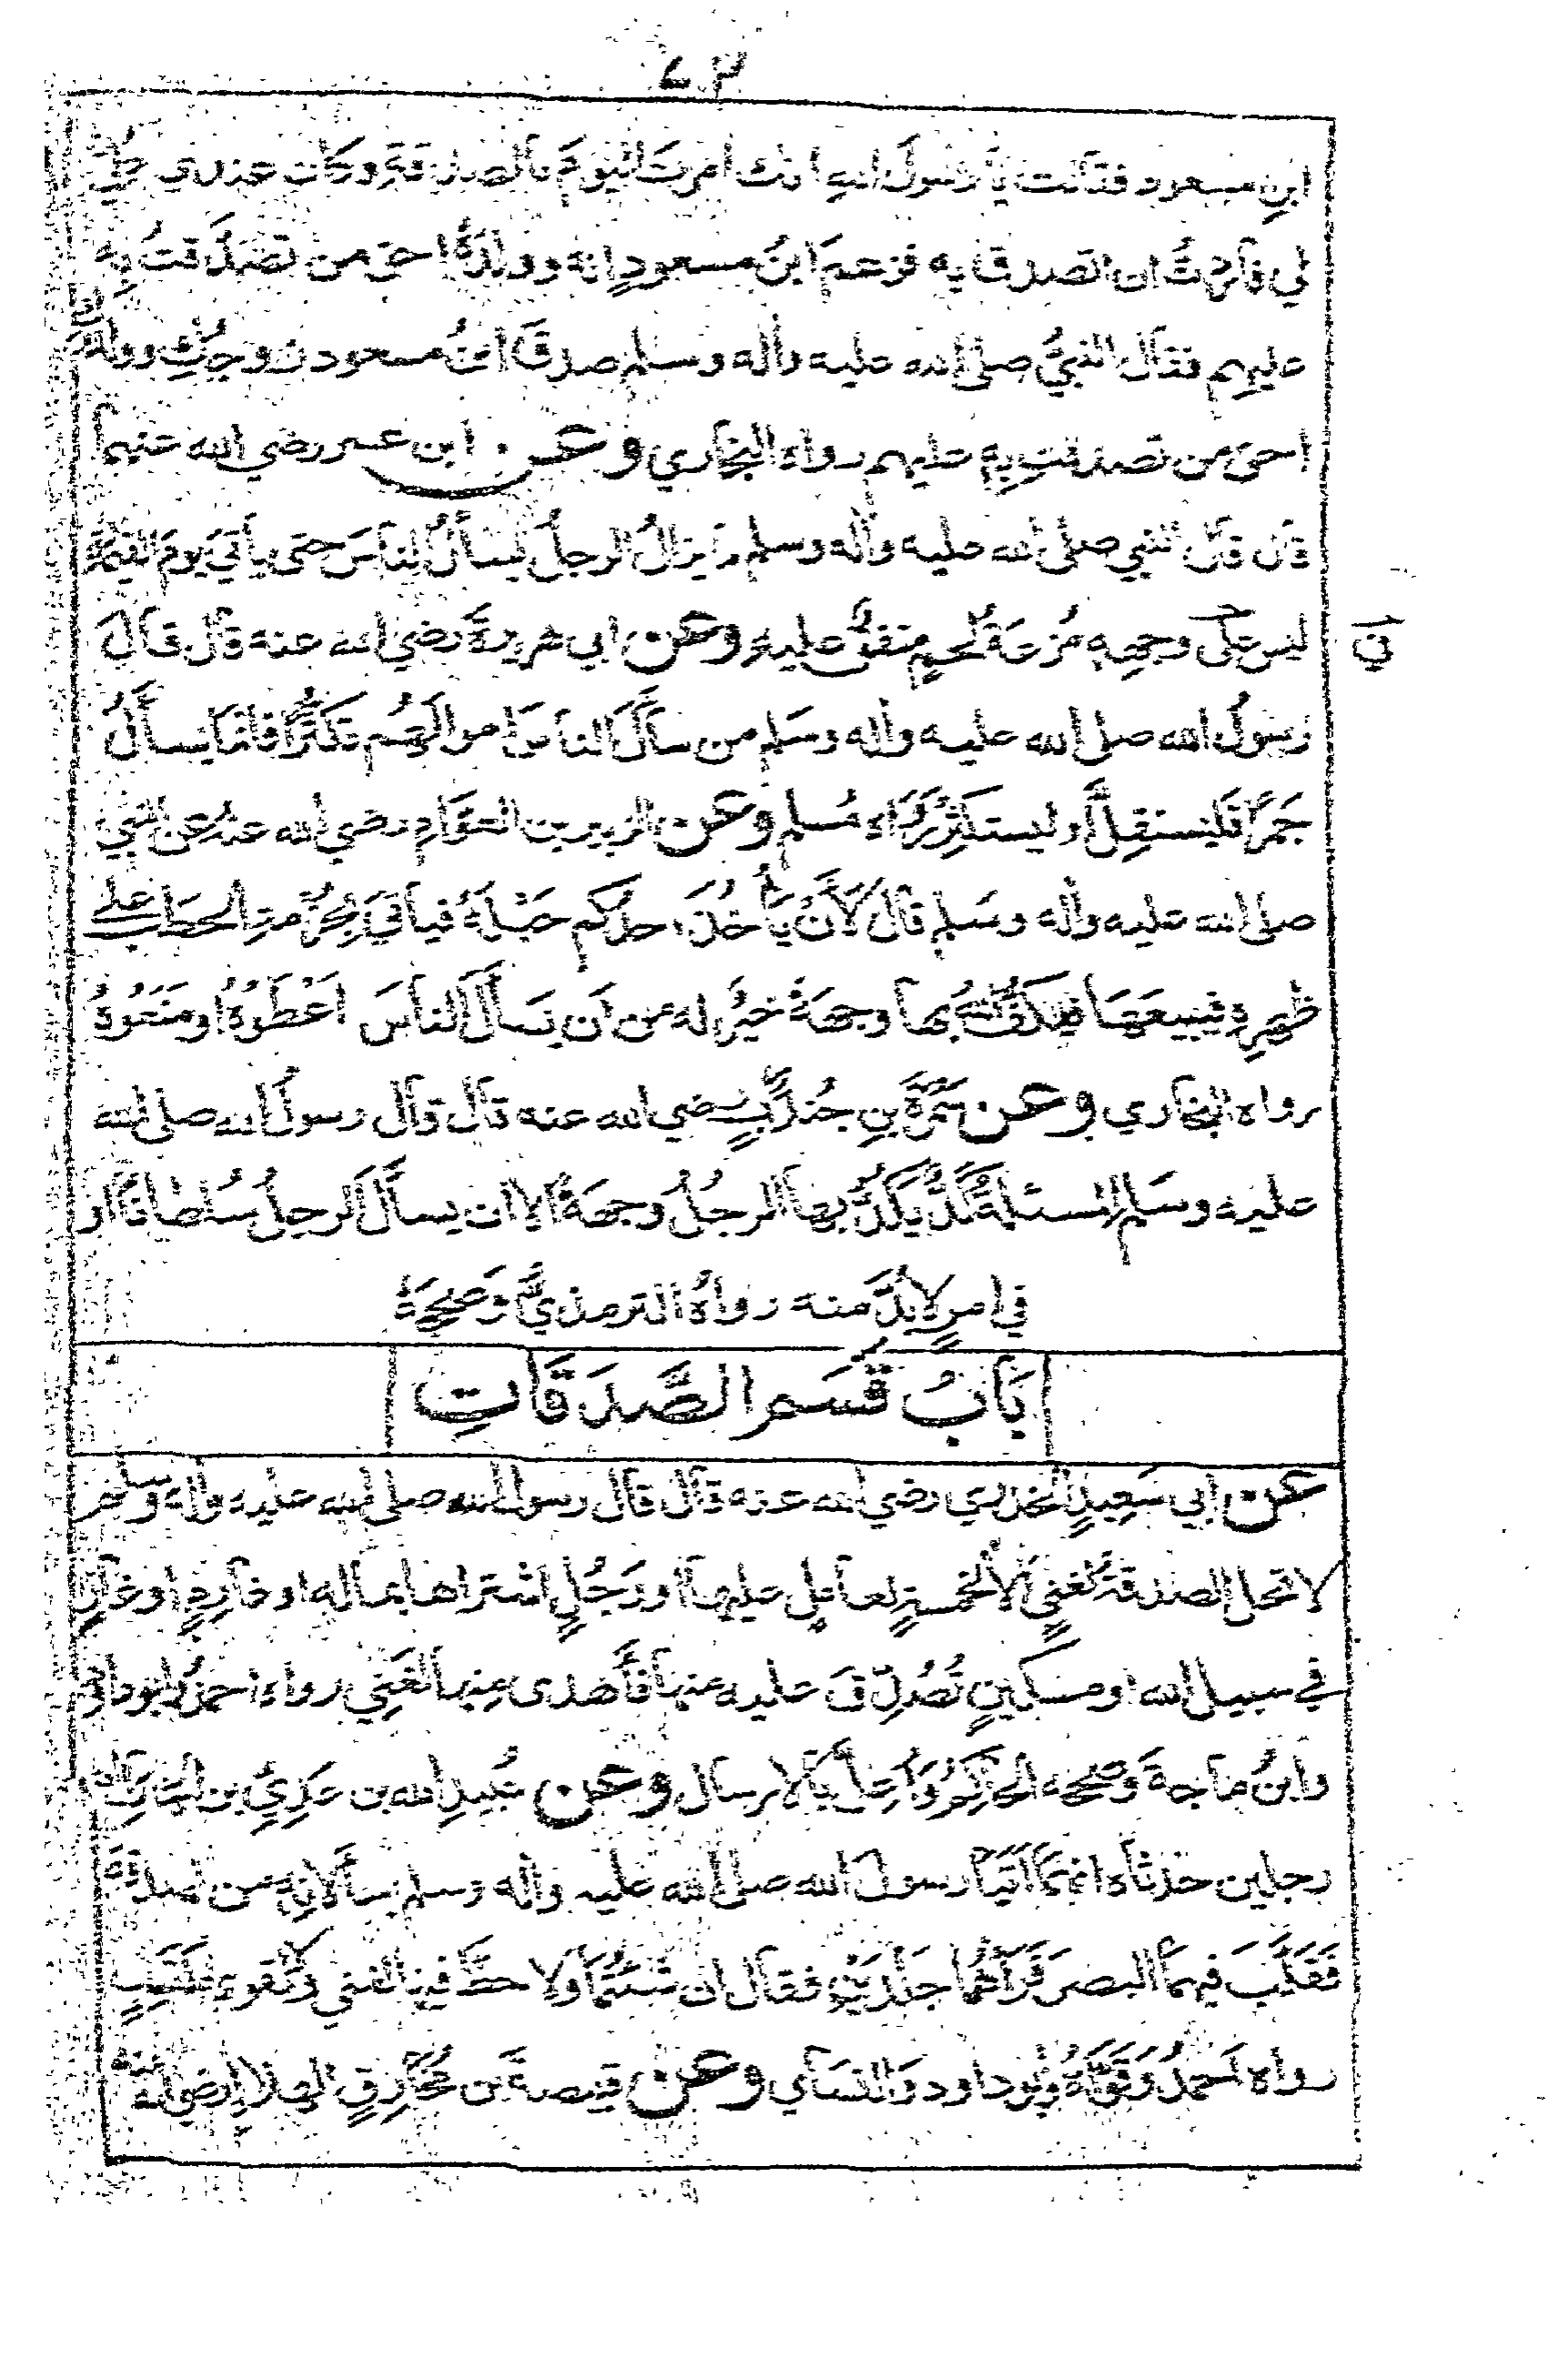 ابن مسعود فقالت يا رسول الله انك امرت اليوم بالصدقة وكان عندي حلي
لي فأردت ان اتصدق به فزعم ابن مسعود انه وولده احق من تصدقت به
عليهم فقال النبي صلى الله عليه وآله وسلم صدق ابن مسعود زوجك وولدك
احق من تصدقت به عليهم رواه البخاري وعن ابن عمر رضي الله عنهما
قال قال النبي صلى الله عليه وآله وسلم لا يزال الرجل يسأل الناس حتى يأتي يوم القيمة
ليس على وجهه مُزعة لحم متفق عليه وعن ابي هريرة رضي الله عنه قال قال
في
رسول الله صلى الله عليه وآله وسلم من سأل الناس اموالهم تكثرا فانما يسأل
جمرا فليستقل او ليستكثر رواه مسلم وعن الزبير بن العوام رضي الله عنه عن النبي
صلى الله عليه وآله وسلم قال لأن يأخذ احدكم حبله فيأتي بحزمة من الحطب على
ظهره فيبيعها فيكف الله بها وجهه خير له من ان يسأل الناس اعطوه او منعوه
رواه البخاري وعن سمرة بن جندب رضي الله عنه قال قال رسول الله صلى الله
عليه وسلم المسئلة كد يكد بها الرجل وجهه الا ان يسأل الرجل سلطانا او
في امر لا بد منه رواه الترمذي وصححه
بَابُ قَسْمِ الصَّدَقَاتِ
عن ابي سعيد الخدري رضي الله عنه قال قال رسول الله صلى الله عليه وآله وسلم
لا تحل الصدقة لغني الا لخمسة لعامل عليها او رجل اشتراها بماله او غارم او غاز
في سبيل الله او مسكين تصدق عليه منها فأهدى منها لغني رواه احمد وابو داود
وابن ماجة وصححه الحاكم واعل بالارسال وعن عبيد الله بن عدي بن الخيار ان
رجلين حدثاه انهما اتيا رسول الله صلى الله عليه وآله وسلم يسألانه من الصدقة
فقلب فيهما البصر فرآهما جلدين فقال ان شئتما ولا حظ فيها لغني ولا لقوي مكتسب
رواه احمد وقواه وابو داود والنسائي وعن قبيصة بن مخارق الهلالي رضي الله عنه